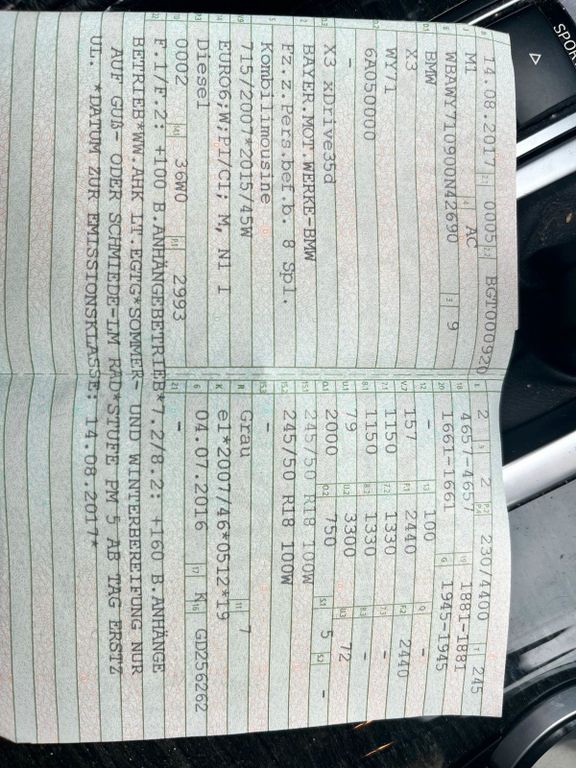 B 14.08.2017 2.1 0005 2.2 BGT000920
J M1 4 AC
E WBAWY710900N42690 3 9
D.1 BMW
X3
D.2 WY71
6A050000
-
D.3 X3 xDrive35d
2 BAYER.MOT.WERKE-BMW
5 Fz.z.Pers.bef.b. 8 Spl.
Kombilimousine
V.9 715/2007*2015/45W
14 EURO6;W;PI/CI; M, N1 I
P.3 Diesel
10 0002 14.1 36W0 P.1 2993
L 2 9 2 P.2 P.4 230/4400 T 245
18 4657-4657 19 1881-1881
20 1661-1661 G 1945-1945
12 - 13 100 Q -
V.7 157 F.1 2440 F.2 2440
7.1 1150 7.2 1330 7.3 -
8.1 1150 8.2 1330 8.3 -
U.1 79 U.2 3300 U.3 72
O.1 2000 O.2 750 S.1 5 S.2 -
15.1 245/50 R18 100W
15.2 245/50 R18 100W
15.3 -
R Grau 11 7
K e1*2007/46*0512*19
6 04.07.2016 17 K 16 GD256262
21 -
22 F.1/F.2: +100 B.ANHÄNGEBETRIEB*7.2/8.2: +160 B.ANHÄNGE
BETRIEB*WW.AHK LT.EGTG*SOMMER- UND WINTERBEREIFUNG NUR
AUF GUß- ODER SCHMIEDE-LM RAD*STUFE PM 5 AB TAG ERSTZ
UL. *DATUM ZUR EMISSIONSKLASSE: 14.08.2017*
SPORT